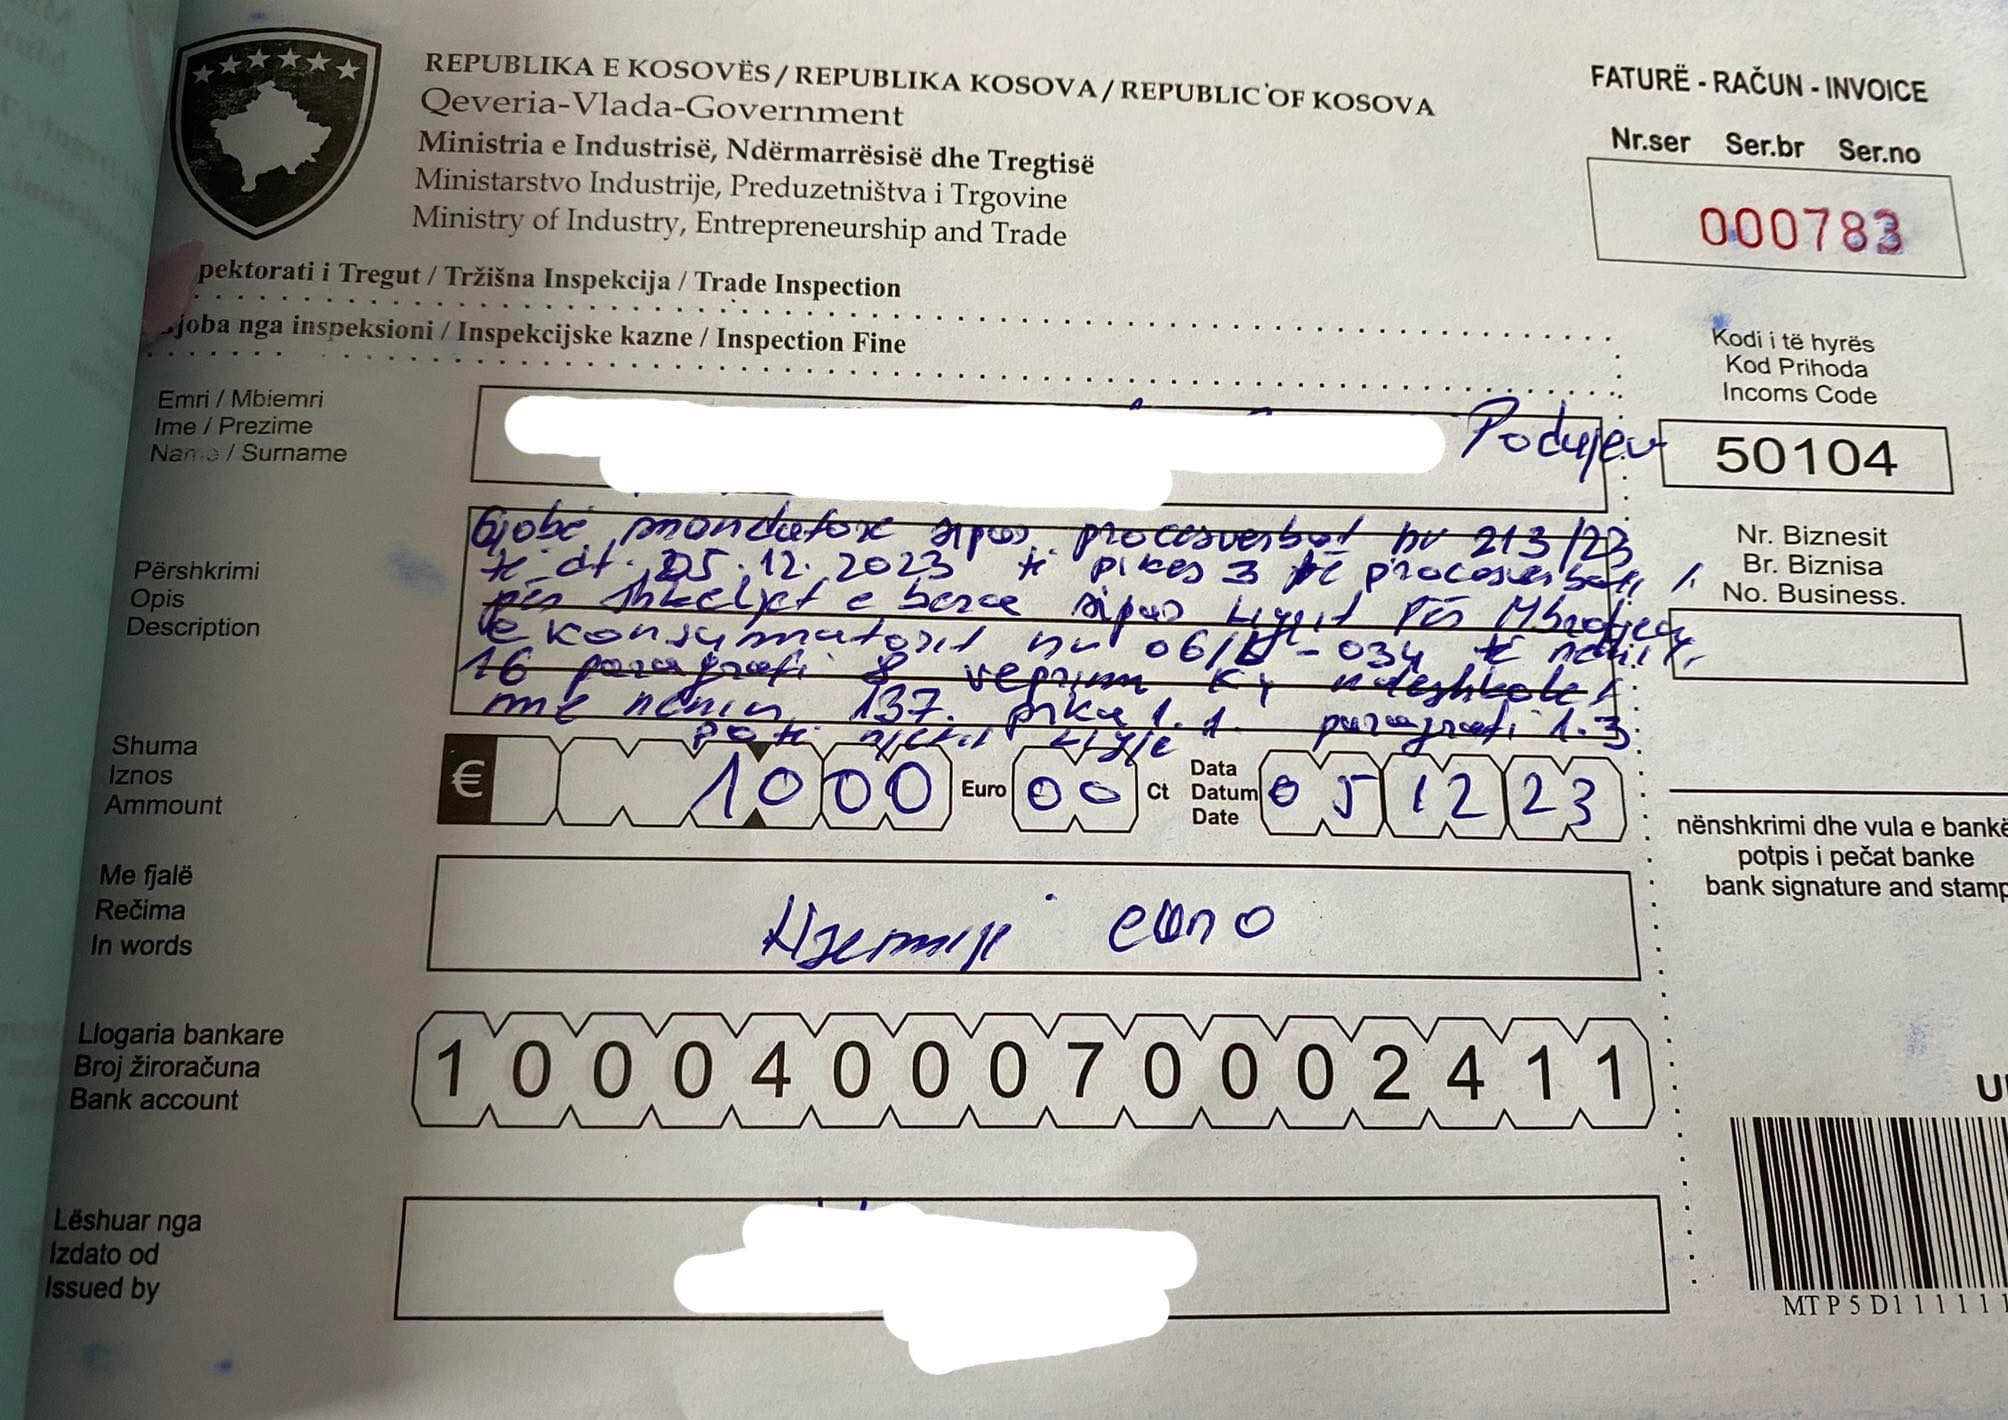 REPUBLIKA E KOSOVËS / REPUBLIKA KOSOVA / REPUBLIC OF KOSOVA
Qeveria-Vlada-Government
Ministria e Industrisë, Ndërmarrësisë dhe Tregtisë
Ministarstvo Industrije, Preduzetništva i Trgovine
Ministry of Industry, Entrepreneurship and Trade
pektorati i Tregut / Tržišna Inspekcija / Trade Inspection
joba nga inspeksioni / Inspekcijske kazne / Inspection Fine
FATURË - RAČUN - INVOICE
Nr.ser Ser.br Ser.no
000783
Kodi i të hyrës
Kod Prihoda
Incoms Code
50104
Nr. Biznesit
Br. Biznisa
No. Business.
Emri / Mbiemri
Ime / Prezime
Name / Surname
Podujev
Përshkrimi
Opis
Description
Gjobë mandatore sipas procesverbal nr 213/23
të dt. 05.12.2023 të pikes 3 të procesverbali
për shkeljet e bera sipas Ligjit për Mbrojtjen
e konsumatorit nr 06/L-034 të nenit
16 paragrafi 8 veprim ky ndëshkohet
me nenin 137. pika 1.1. paragrafi 1.3
Shuma
Iznos
Ammount
€ 1000 Euro 00 Ct
Data
Datum
Date
05 12 23
nënshkrimi dhe vula e bankë
potpis i pečat banke
bank signature and stamp
Me fjalë
Rečima
In words
Njëmijë euro
Llogaria bankare
Broj žiroračuna
Bank account
1000400070002411
Lëshuar nga
Izdato od
Issued by
MTP5D111111